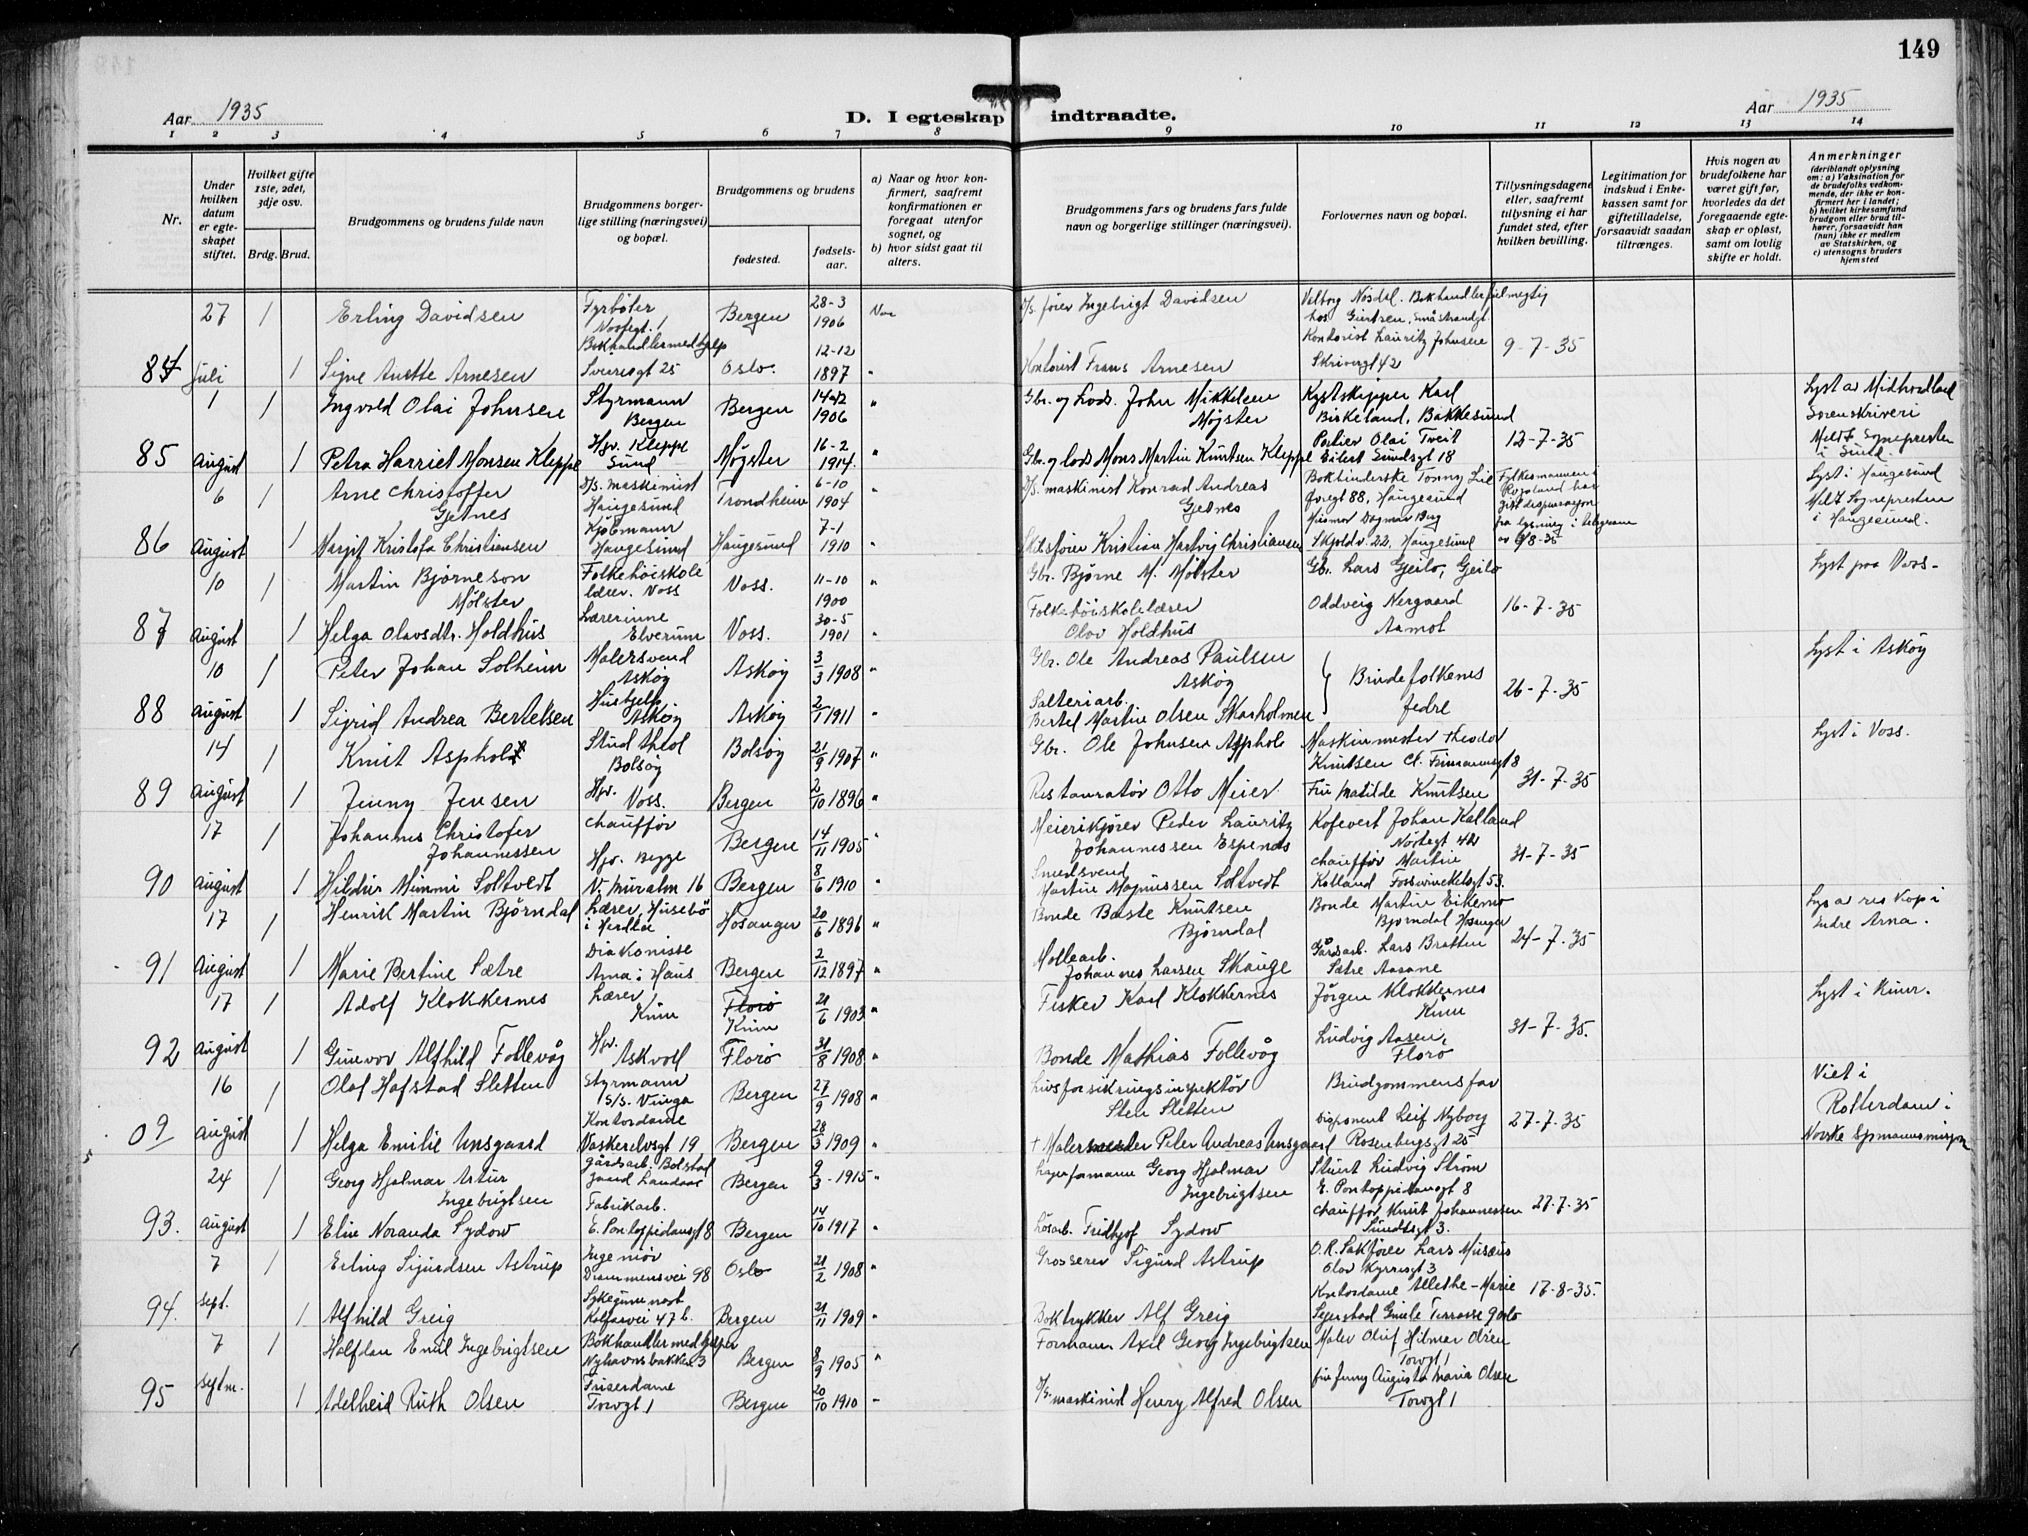 149
Aar 1935
D. I egteskap indtraadte.
Aar 1935
1 2 3 4 5 6 7 8 9 10 11 12 13 14
Nr.
Under hvilken datum er egteskapet stiftet.
Hvilket gifte 1ste, 2det, 3dje osv.
Brdg. Brud.
Brudgommens og brudens fulde navn
Brudgommens borgerlige stilling (næringsvei) og bopæl.
Brudgommens og brudens
fødested.
fødselsaar.
a) Naar og hvor konfirmert, saafremt konfirmationen er foregaat utenfor sognet, og
b) hvor sidst gaat til alters.
Brudgommens fars og brudens fars fulde navn og borgerlige stillinger (næringsvei).
Forlovernes navn og bopæl.
Tillysningsdagene eller, saafremt tillysning ei har fundet sted, efter hvilken bevilling.
Legitimation for indskud i Enkekassen samt for giftetilladelse, forsaavidt saadan tiltrænges.
Hvis nogen av brudefolkene har været gift før, hvorledes da det foregaaende egteskap er opløst, samt om lovlig skifte er holdt.
Anmerkninger (deriblandt oplysning om: a) Vaksination for de brudefolks vedkommende, der ikke er konfirmert her i landet; b) hvilket kirkesamfund brudgom eller brud tilhører, forsaavidt han (hun) ikke er medlem av Statskirken, og c) utensogns bruders hjemsted
27 1 Erling Davidsen Fyrbøter Bergen 28-3 1906 fører Ingebrigt Davidsen
84 Juli 1 Signe Anette Arnesen Sverresgt 25 Oslo 12-12 1897 " Kontorist Frans Arnesen Kontorist Lauritz Johnsen Skrivergt 42 9-7-35
1 1 Ingvald Olai Johnsen Styrmann Bergen Bergen 1906 " Gbr. og Lods. John Mikkelsen Møgster Kystskipper Karl Birkeland, Bakkesund
85 August 1 Petra Harriet Monsen Kleppe Hjv. Kleppe Sund Møgster 16-2 1914 " Gbr. og lods Mons Martin Knutsen Kleppe Portier Olai Tveit Eilert Sundsgt 18 12-7-35 Sorenskriveri
6 1 Arne Christoffer Gjetnes D/S. maskinist Haugesund Trondheim 6-10 1904 " D/S. maskinist Konrad Andreas Gjetnes Haugesund Lyst i Haugesund Meldt Sognepresten i Haugesund.
86 August 1 Margit Kristofa Christiansen Haugesund Haugesund 7-1 1910 " Skibsfører Kristian Hartvig Christiansen Skjoldv. 22, Haugesund
10 1 Martin Bjørneson Mølster Folkehøiskole lærer. Voss Voss. 11-10 1900 " Gbr. Bjørne M. Mølster Gbr. Lars Geilo, Geilo Lyst paa Voss-
87 August 1 Helga Olavsdtr. Holdhus Lærerinne Elverum Voss. 30-5 1901 " Folkehøiskolelærer Olav Holdhus Oddveig Nergaard Aamot 16-7-35
10 1 Peter Johan Solheim Malersvend Askøy Askøy 3/3 1908 " Gbr. Ole Andreas Paulsen Askøy Brudefolkenes fedre Lyst i Askøy
88 August 1 Sigrid Andrea Bertelsen Hushjelp Askøy Askøy 2/1 1911 " Bertel Martin Olsen Skarholmen 26-7-35
14 1 Knut Asphol Stud theol Bolsøy Bolsøy 21/9 1907 " Gbr. Ole Johnsen Asphol Maskinmester Theodor Knutsen Lyst i Voss.
89 August 1 Jenny Jensen Hjv. Voss. Bergen 2/10 1896 " Restauratør Otto Meier Fru Matilde Knutsen 31-7-35
17 1 Johannes Christofer Johannessen Chauffør Bergen 14/11 1905 " Meierikjører Peder Lauritz Johannessen Espenes Johan Kalland
90 August 1 Hildur Mimmi Soltvedt Hjv. Begge N. Muralm 16 Bergen 8/6 1910 " Smedsvend Martin Magnussen Soltvedt Chauffør Martin Kalland 31-7-35
17 1 Henrik Martin Bjørndal Lærer, Husebø i Herdla Hosanger 20/6 1896 " Bonde Baste Knutsen Bjørndal Bonde Martin Eikemo Bjørndal Hosanger Indre Arna.
91 August 1 Marie Bertine Sætre Diakonisse Arna i Haus Bergen 2/12 1897 " Møllearb. Johannes Larsen Skauge Gårdsarb. Lars Bratten Sætre Aasane 24-7-35
17 1 Adolf Klokkernes Lærer Kinn Florø Kinn 21/6 1903 " Fisker Karl Klokkernes Jørgen Klokkernes Kinn Lyst i Kinn.
92 August 1 Gunvor Alfhild Follevåg Hjv. Askvoll Florø 31/8 1908 " Bonde Mathias Follevåg Ludvig Aasen, Florø 31-7-35.
16 1 Olaf Hofstad Sletten Styrmann S/S. Vinga Bergen 27/9 1908 " Livsforsikringsinspektør Sten Sletten Brudgommens far Viet i Rotterdam i
09 August 1 Helga Emilie Unsgaard Kontordame Vaskerelvsgt 19 Bergen 28/3 1909 " + Malermester Peter Andreas Unsgaard Disponent Leif Nyborg Rosenbergsgt 25 27-7-35 Norske Sjømannsmisjon
24 1 Georg Hjalmar Artur Ingebrigtsen Gårdsarb. Bolstad gaard Landaas Bergen 9/3-1915 " Lagerformann Georg Hjalmar Ingebrigtsen Stuert Ludvig Strøm E. Pontoppidansgt 8
93. August 1 Elin Noranda Sydow Fabrikarb. E. Pontoppidansgt 8 Bergen 14/10 1917 " Løsarb. Fridtjof Sydow Chauffør Knut Johannessen Sundtsgt 3. 27-7-35
7 1 Erling Sigurdsen Astrup Ingeniør Drammensvei 98 Oslo 21/2 1908 " Grosserer Sigurd Astrup O.R. Sakfører Lars Musæus Olav Kyrresgt 3
94. Sept. 1 Alfhild Greig Sykegymnast Kalfarvei 47 b. Bergen 21/11 1909 " Boktrykker Alf Greig Kontordame Allethe-Marie Terrasse 9 Oslo 17-8-35.
7 1 Halfdan Emil Ingebrigtsen Bokhandlermedhjelper Nyhavnsbakken 3 Bergen 8/9 1905 " Formann Axel Georg Ingebrigtsen Maler Oluf Hilmar Olsen Torvgt 1
95 Septm. 1 Adelheid Ruth Olsen Friserdame Torvgt 1 Bergen 20/10 1910 " maskinist Henry Alfred Olsen fru Jenny Augusta Maria Olsen Torvgt 1